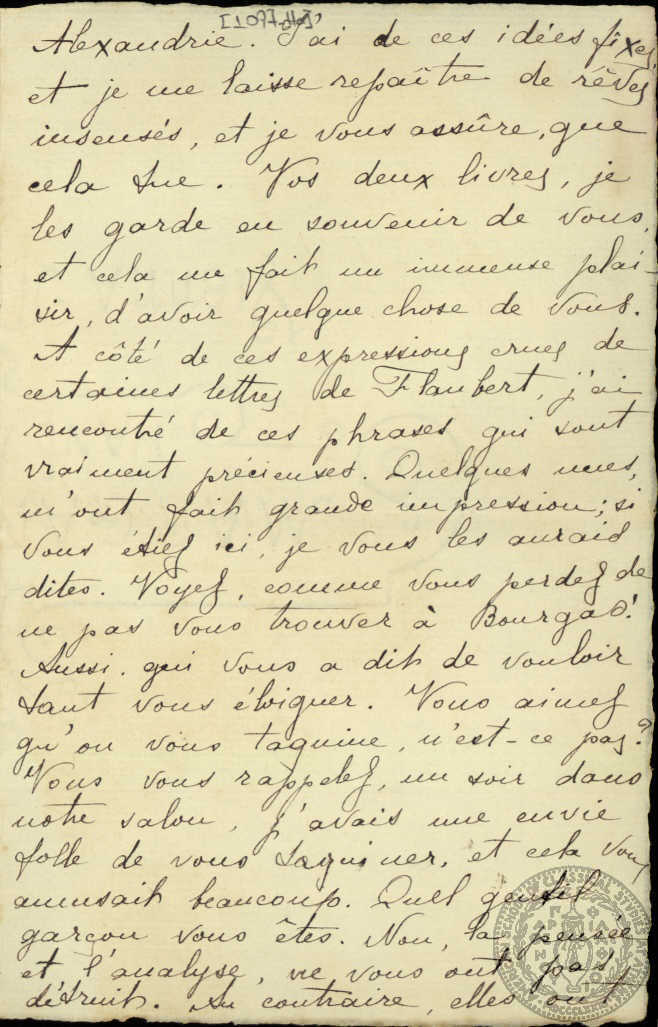 Alexandrie. J'ai de ces idées fixes,
et je me laisse repaître de rêves
insensés, et je vous assûre, que
cela tue. Vos deux livres, je
les garde en souvenir de vous,
et cela me fait un immense plai-
sir, d'avoir quelque chose de vous.
A côté de ces expressions crues de
certaines lettres de Flaubert, j'ai
rencontré de ces phrases qui sont
vraiment précieuses. Quelques unes,
m'ont fait grande impression; si
vous étiez ici, je vous les aurais
dites. Voyez, comme vous perdez de
ne pas vous trouver à Bourgas!
Aussi, qui vous a dit de vouloir
tant vous éloigner. Vous aimez
qu'on vous taquine, n'est-ce pas?
Vous vous rappelez, un soir dans
notre salon, j'avais une envie
folle de vous taquiner, et cela vous
amusait beaucoup. Quel gentil
garçon vous êtes. Non, la pensée
et l'analyse, ne vous ont pas
détruit. Au contraire, elles ont